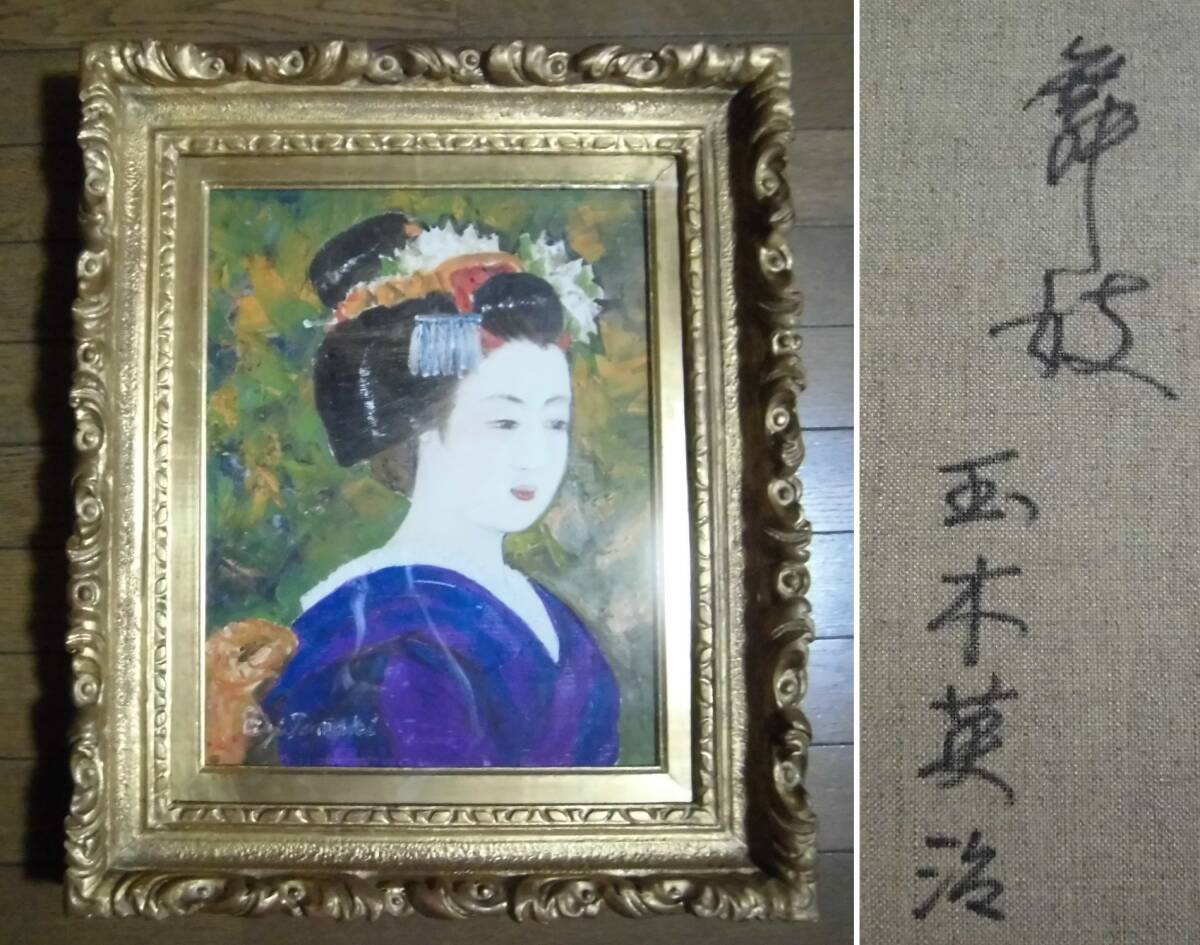 Eiji Tamaki
舞妓
玉木英治